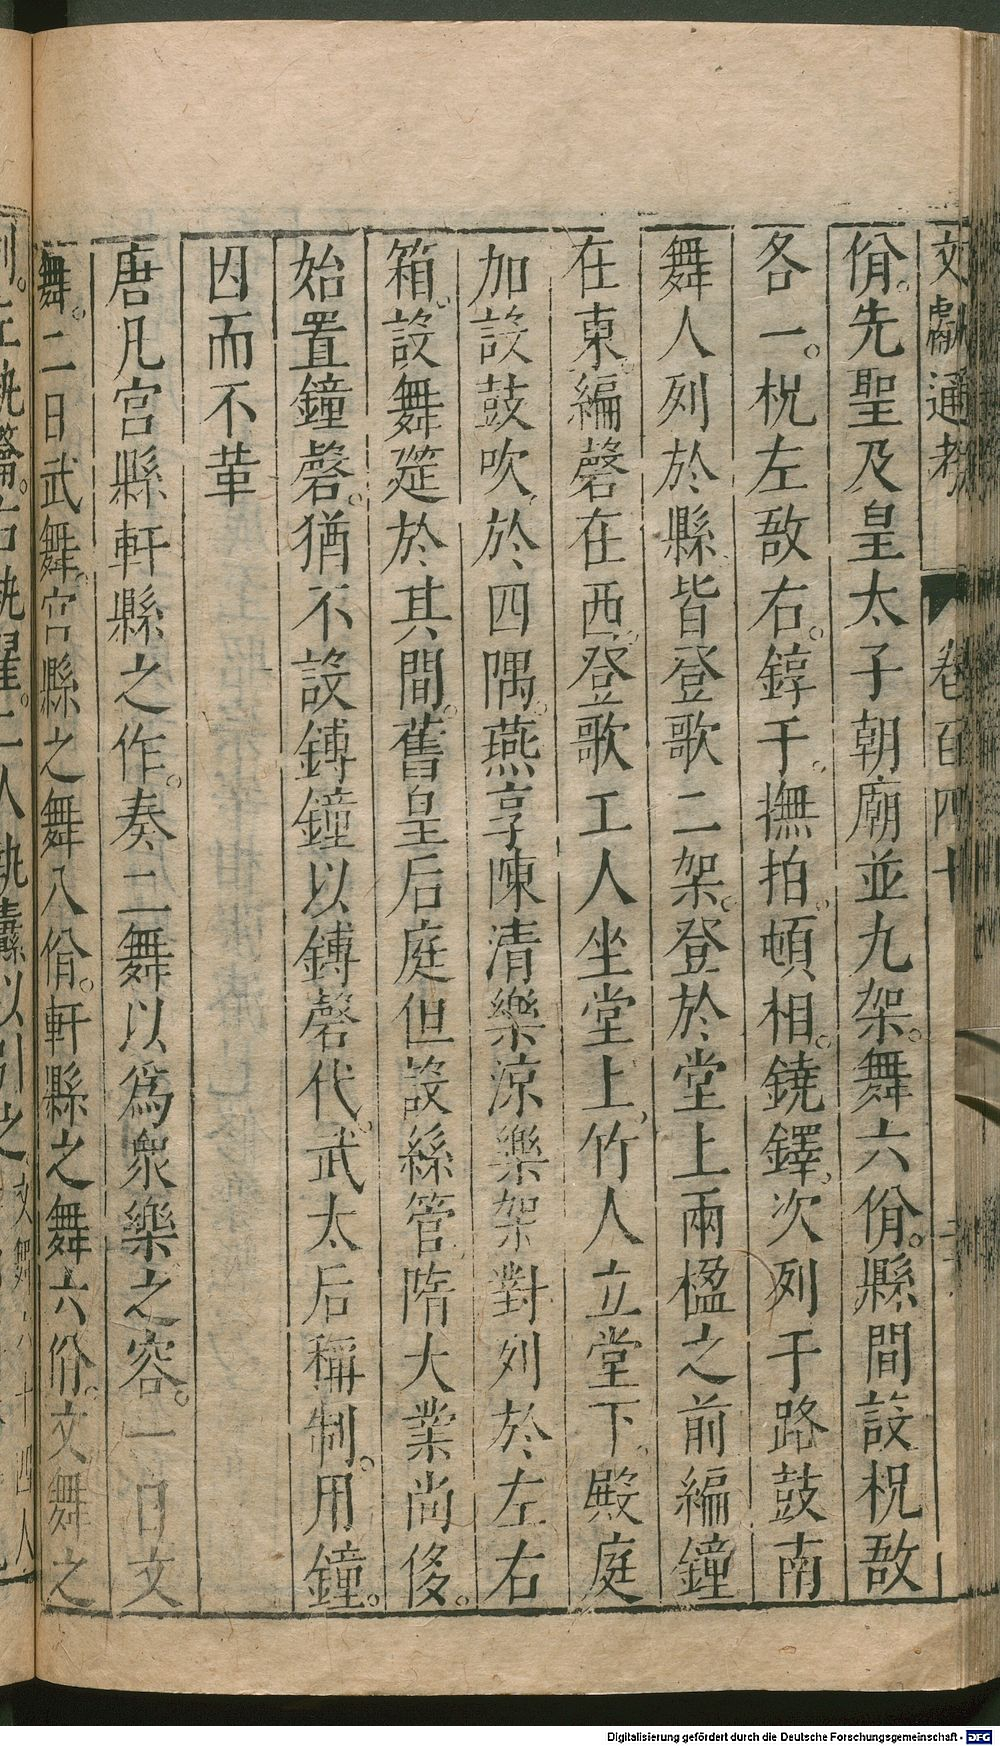 文獻通考 卷百四十
佾。先聖及皇太子朝廟並九架。舞六佾。縣間設柷敔
各一。柷左敔右。錞于。撫拍。頓相。鐃鐸。次列于路鼓南
舞人列於縣皆登歌二架。登於堂上兩楹之前編鐘
在東。編磬在西。登歌工人坐堂上，竹人立堂下。殿庭
加設鼓吹，於四隅。燕享陳清樂涼樂架對列於左右
箱。設舞筵於其間。舊皇后庭但設絲管隋大業尚侈。
始置鐘磬。猶不設鎛鐘以鎛磬代。武太后稱制。用鐘。
因而不革
唐凡宮縣軒縣之作。奏二舞以為衆樂之容。一曰文
舞。二曰武舞。宮縣之舞八佾。軒縣之舞六佾。文舞之
左執籥。右執翟。二人執纛以引之 文舞六十四人
Digitalisierung gefördert durch die Deutsche Forschungsgemeinschaft - DFG